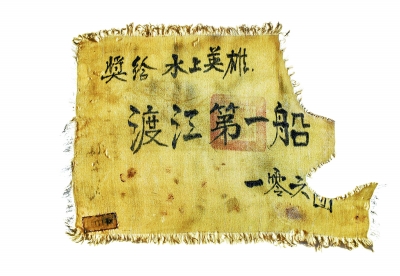 奬给水上英雄.
渡江第一船
一零六团